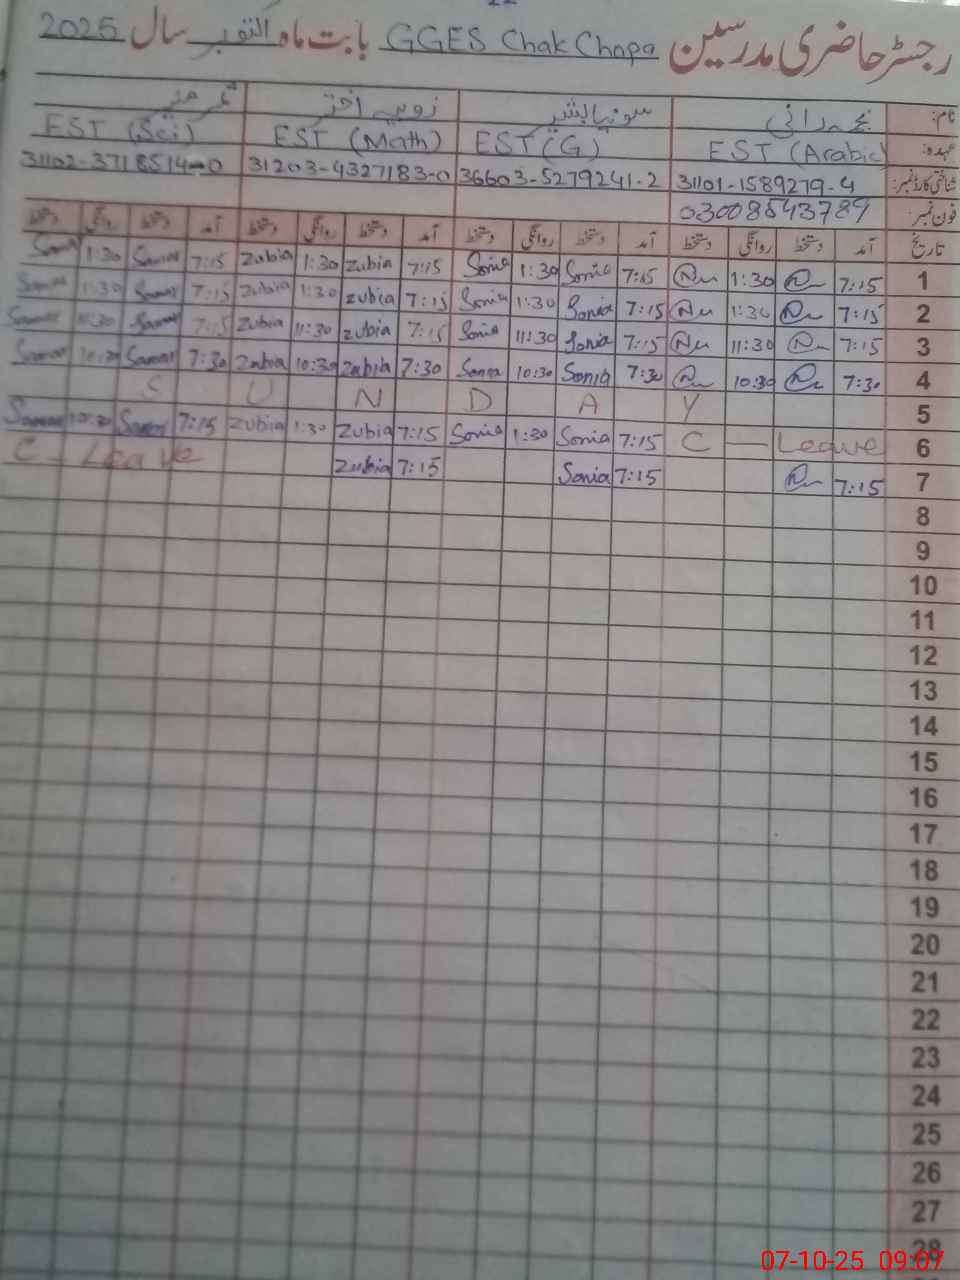 رجسٹر حاضری مدرسین GGES Chak Chopa بابت ماہ اکتوبر سال 2025
نام: نجمہ رانی سونیا بشیر زوبیہ اختر ثمر منیر
عہدہ: EST (Arabic) EST (G) EST (Math) EST (Sci)
شناختی کارڈ نمبر: 31101-1589279-4 36603-5279241-2 31203-4327183-0 31102-3718514-0
فون نمبر: 03008543789
تاریخ آمد دستخط روانگی دستخط آمد دستخط روانگی دستخط آمد دستخط روانگی دستخط آمد دستخط روانگی دستخط
1 7:15 1:30 7:15 Sonia 1:30 Sonia 7:15 Zubia 1:30 Zubia 7:15 Samar 1:30 Samar
2 7:15 1:30 7:15 Sonia 1:30 Sonia 7:15 Zubia 1:30 Zubia 7:15 Samar 1:30 Samar
3 7:15 11:30 7:15 Sonia 11:30 Sonia 7:15 Zubia 11:30 Zubia 7:15 Samar 11:30 Samar
4 7:30 10:30 7:30 Sonia 10:30 Sonia 7:30 Zubia 10:30 Zubia 7:30 Samar 10:30 Samar
S U N D A Y 5
C — Leave 6 7:15 Sonia 1:30 Sonia 7:15 Zubia 1:30 Zubia 7:15 Samar 10:30 Samar
7 7:15 7:15 Sonia 7:15 Zubia C - Leave
8
9
10
11
12
13
14
15
16
17
18
19
20
21
22
23
24
25
26
27
28
07-10-25 09:07